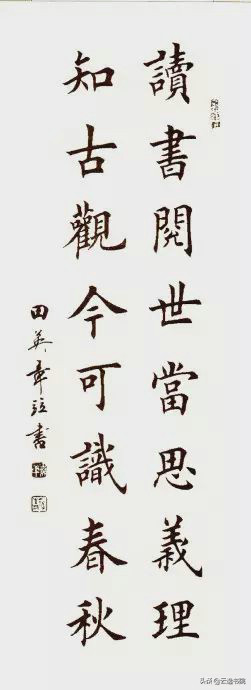 讀書閱世當思義理
知古觀今可識春秋
田英章書
头条